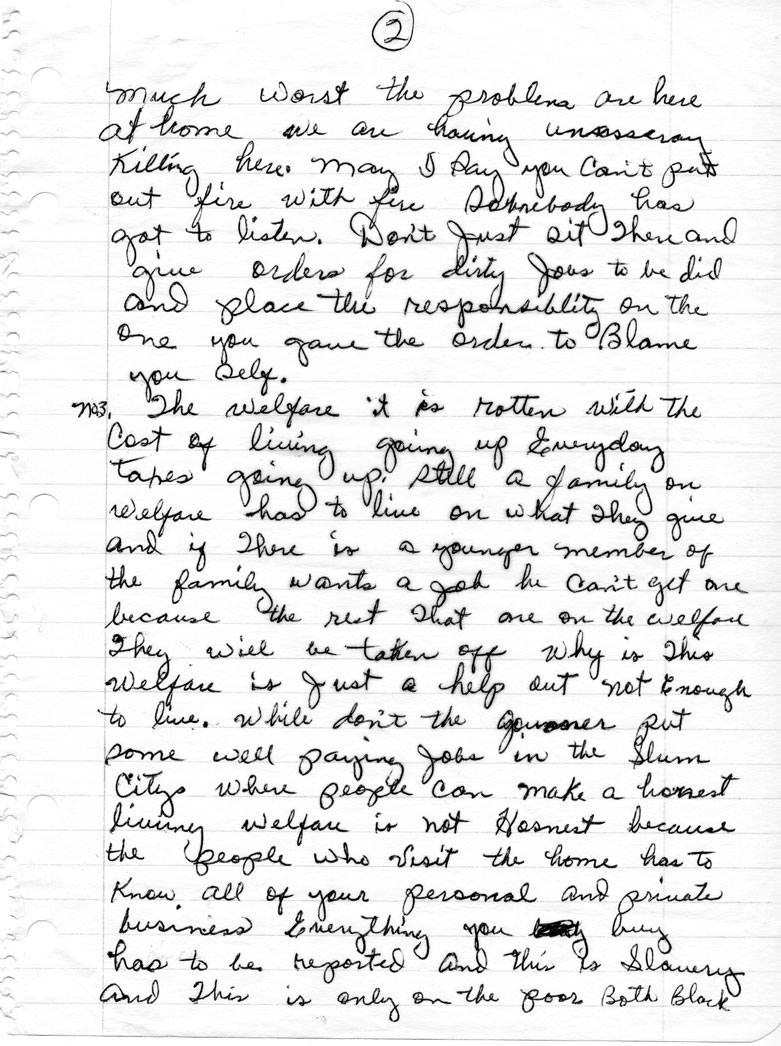 2
much worst the problems are here
at home we are having unosscray
Killing here. May I Say you Can't put
out fire with fire Somebody has
got to listen. Don't Just sit There and
give orders for dirty Jobs to be did
and place the responsiblity on the
one you gave the order to Blame
you Self.
No3. The welfare it is rotten with the
Cost of living going up Everyday
tapes going up. Still a family on
welfare has to live on what They give
and if There is a younger member of
the family wants a job he Can't get one
because the rest That are on the welfare
They will be taken off Why is This
Welfare is Just a help out not Enough
to live. While don't the put
some well paying Jobs in the Slum
Citys where people can make a honest
living welfare is not Hosnest because
the people who Visit the home has to
Know all of your personal and private
business Everything you buy
has to be reported and this is Slavery
and This is only on the poor Both Black